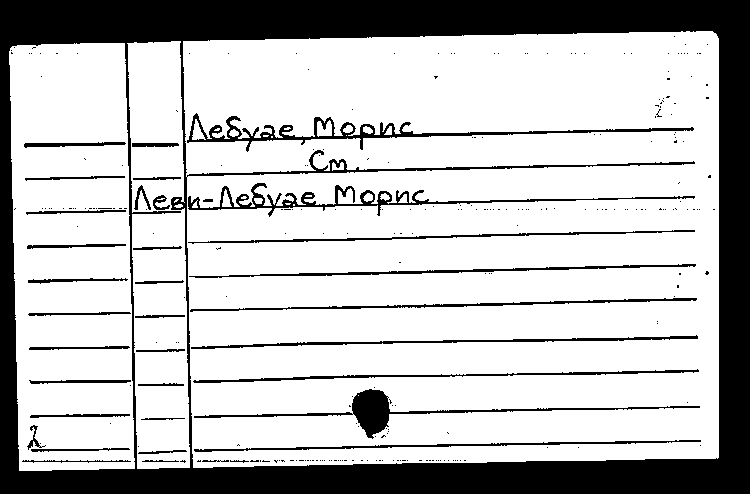 Лебуае, Морис
См.
Леви-Лебуае, Морис